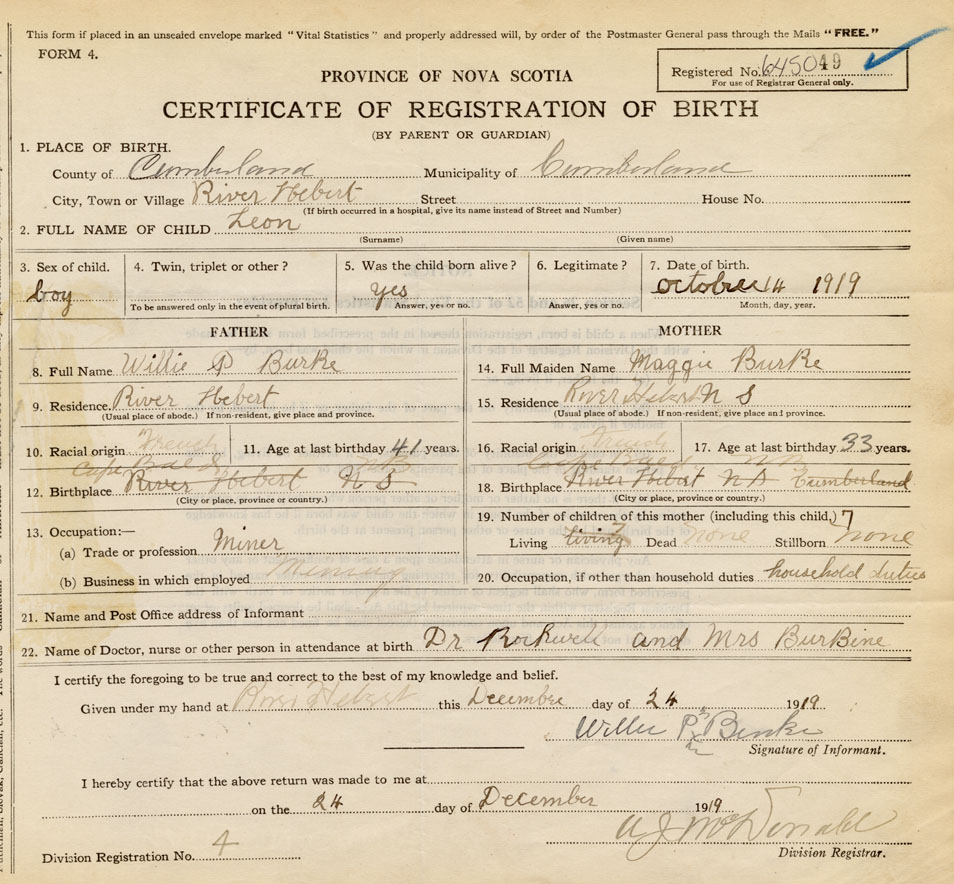 This form if placed in an unsealed envelope marked "Vital Statistics" and properly addressed will, by order of the Postmaster General pass through the Mails "FREE."
FORM 4.
Registered No. 645049
For use of Registrar General only.
PROVINCE OF NOVA SCOTIA
CERTIFICATE OF REGISTRATION OF BIRTH
(BY PARENT OR GUARDIAN)
1. PLACE OF BIRTH.
County of Cumberland Municipality of Cumberland
City, Town or Village River Hebert Street House No.
(If birth occurred in a hospital, give its name instead of Street and Number)
2. FULL NAME OF CHILD Leon
(Surname) (Given name)
3. Sex of child. 4. Twin, triplet or other? 5. Was the child born alive? 6. Legitimate? 7. Date of birth.
boy yes october 14 1919
To be answered only in the event of plural birth. Answer, yes or no. Answer, yes or no. Month, day, year.
FATHER MOTHER
8. Full Name Willie P Burke 14. Full Maiden Name Maggie Burke
9. Residence. River Hebert 15. Residence River Hebert N S
(Usual place of abode.) If non-resident, give place and province. (Usual place of abode.) If non-resident, give place and province.
10. Racial origin French 11. Age at last birthday 41 years. 16. Racial origin French 17. Age at last birthday 33 years.
Cape Cape
12. Birthplace River Hebert N S 18. Birthplace River Hebert N S Cumberland
(City or place, province or country.) (City or place, province or country.)
19. Number of children of this mother (including this child.) 7
13. Occupation:—
(a) Trade or profession Miner Living living 7 Dead none Stillborn none
(b) Business in which employed Mining 20. Occupation, if other than household duties household duties
21. Name and Post Office address of Informant
22. Name of Doctor, nurse or other person in attendance at birth Dr Rockwell and Mrs BurBine
I certify the foregoing to be true and correct to the best of my knowledge and belief.
Given under my hand at River Hebert this Decembre day of 24 1919
Willie P Burke
Signature of Informant.
I hereby certify that the above return was made to me at
on the 24 day of December 1919
A J McDonald
Division Registrar.
Division Registration No. 4